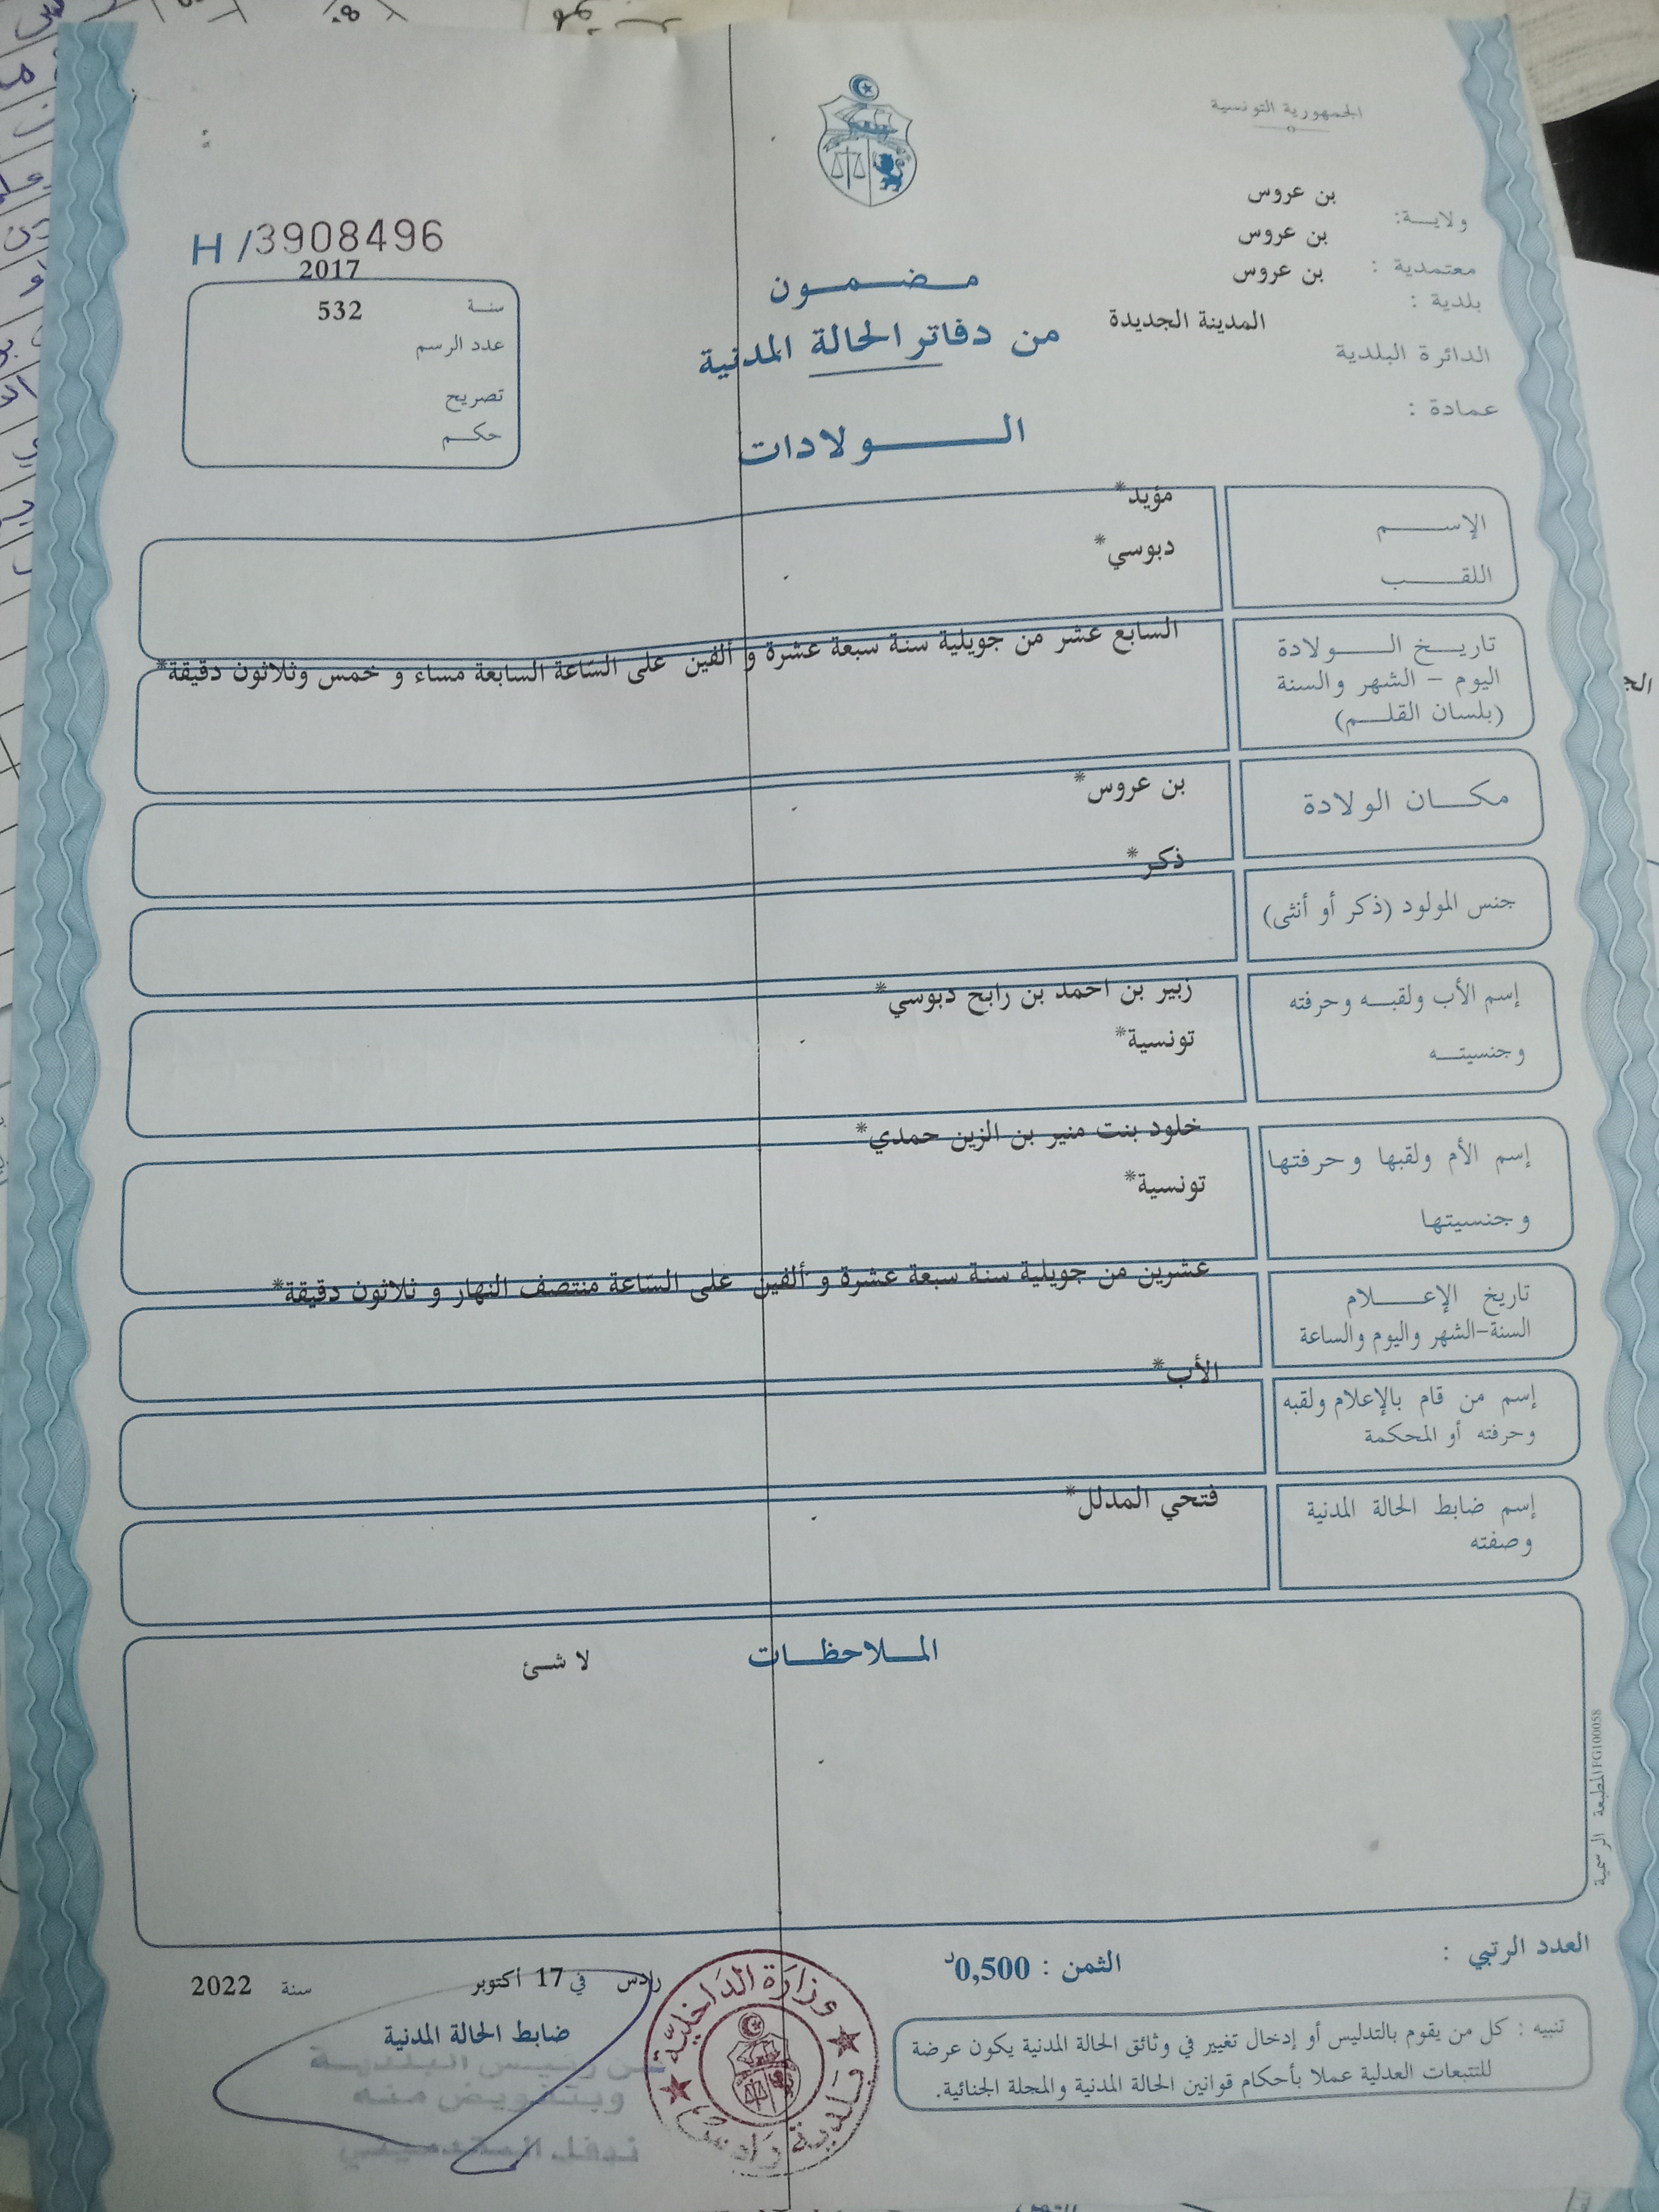 الجمهورية التونسية
ولايـــة: بن عروس
معتمدية : بن عروس
بلدية : بن عروس
الدائرة البلدية المدينة الجديدة
عمادة :
مـضـمـون
من دفاتر الحالة المدنية
الـــولادات
H/3908496
سنة 2017
عدد الرسم 532
تصريح
حكـم
الإســـم مؤيد*
اللقـــب دبوسي*
تاريـخ الـــولادة السابع عشر من جويلية سنة سبعة عشرة و ألفين على الساعة السابعة مساء و خمس وثلاثون دقيقة*
اليوم - الشهر والسنة
(بلسان القلـم)
مكـــان الولادة بن عروس*
جنس المولود (ذكر أو أنثى) ذكر*
إسم الأب ولقبـه وحرفته زبير بن احمد بن رابح دبوسي*
وجنسيتـه تونسية*
إسم الأم ولقبها وحرفتها خلود بنت منير بن الزين حمدي*
وجنسيتها تونسية*
تاريخ الإعـــلام عشرين من جويلية سنة سبعة عشرة و ألفين على الساعة منتصف النهار و ثلاثون دقيقة*
السنة-الشهر واليوم والساعة
إسم من قام بالإعلام ولقبه الأب*
وحرفته أو المحكمة
إسم ضابط الحالة المدنية فتحي المدلل*
وصفته
المـــلاحظـــات
لا شئ
المطبعة الرسمية FG100058
العدد الرتبي :
الثمن : 0,500د
رادس في 17 أكتوبر سنة 2022
ضابط الحالة المدنية
عن رئيس البلدية
وبتفويض منه
وزارة الداخلية
بلدية رادس
تنبيه : كل من يقوم بالتدليس أو إدخال تغيير في وثائق الحالة المدنية يكون عرضة
للتتبعات العدلية عملا بأحكام قوانين الحالة المدنية والمجلة الجنائية.